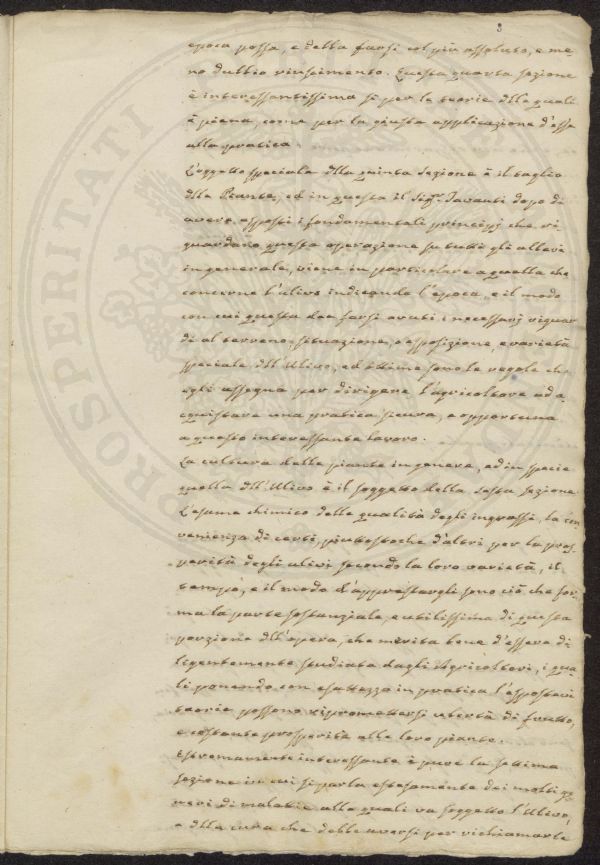 8
epoca possa, e debba farsi col più assoluto, e me-
no dubbio riuscimento. Questa quarta sezione
è interessantissima sì per le teorie delle quali
è piena, come per la giusta applicazione d'esse
alla pratica.
L'oggetto speciale dlla quinta sezione è il taglio
dlle Piante, ed in questa il Sigr. Tavanti dopo di
avere esposti i fondamentali principj che ri-
guardano questa operazione su tutti gli allevi
in generale, viene in particolare a quella che
concerne l'ulivo indicando l'epoca, e il modo
con cui questa dee farsi avuti i necessarj riguar-
di al terreno, situazione, esposizione, e varietà
speciale dll'Ulivo, ed ottime sono le regole che
egli assegna per dirigere l'agricoltore ad a-
cquistare una pratica sicura, e opportuna
a questo interessante lavoro.
La cultura delle piante in genere, ed in specie
quella dll'Ulivo è il soggetto della sesta sezione
L'esame chimico delle qualità degli ingrassi, la con-
venienza di certi, piuttostoche d'altri per la pros-
perità degli ulivi secondo la loro varietà, il
tempo, e il modo d'apprestargli sono ciò che for-
ma la parte sostanziale, e utilissima di questa
porzione dll'opera, che merita bene d'essere di-
ligentemente studiata dagli Agricoltori, i qua-
li ponendo con esattezza in pratica l'espostevi
teorie possono ripromettersi ubertà di frutto,
e costante prosperità alle loro piante.
Estremamente interessante è pure la settima
sezione in cui si parla estesamente dei molti ge-
neri di malatie alle quali va soggetto l'Ulivo,
e dlla cura che debbe aversi per richiamarle
PROSPERITATI